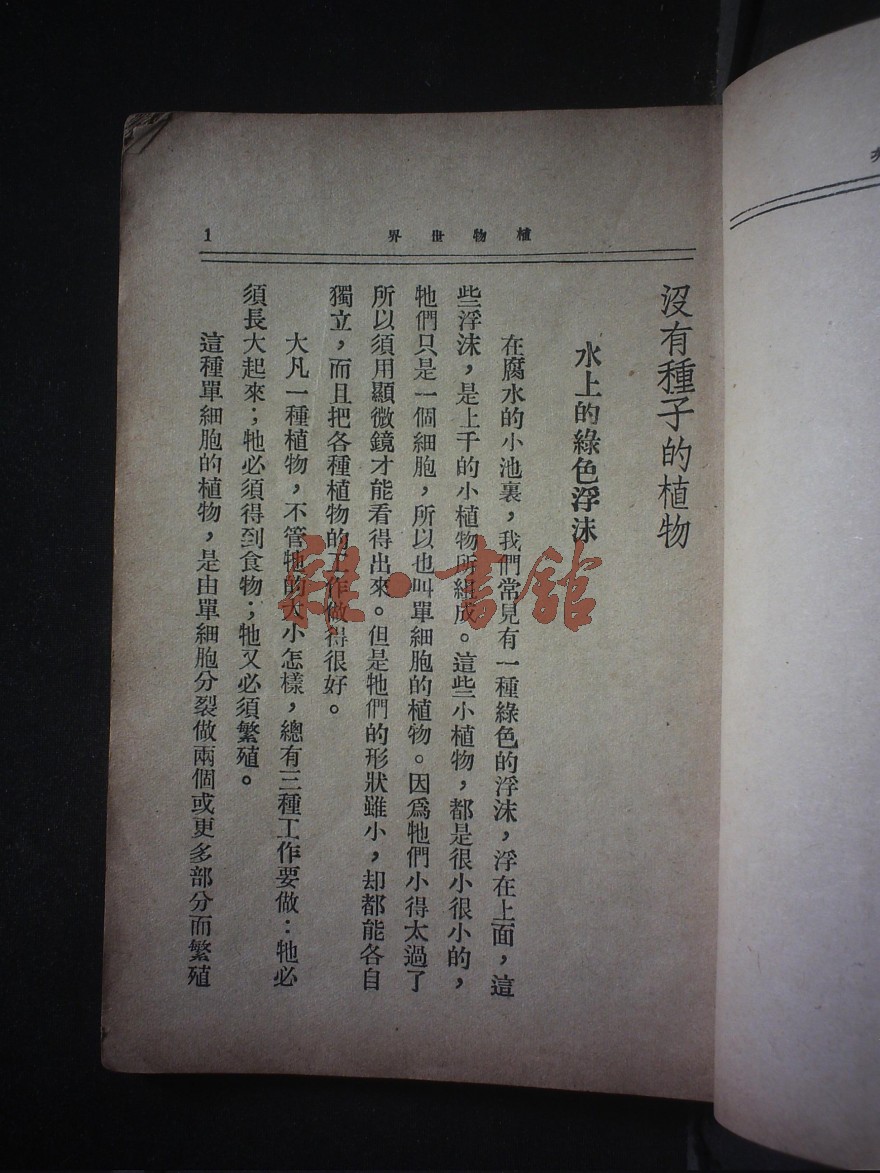 植物世界
1
沒有種子的植物
水上的綠色浮沫
在腐水的小池裏，我們常見有一種綠色的浮沫，浮在上面，這
些浮沫，是上千的小植物所組成。這些小植物，都是很小很小的，
牠們只是一個細胞，所以也叫單細胞的植物。因爲牠們小得太過了
所以須用顯微鏡才能看得出來。但是牠們的形狀雖小，却都能各自
獨立，而且把各種植物的工作做得很好。
大凡一種植物，不管牠的大小怎樣，總有三種工作要做：牠必
須長大起來；牠必須得到食物；牠又必須繁殖。
這種單細胞的植物，是由單細胞分裂做兩個或更多部分而繁殖
雜·書館